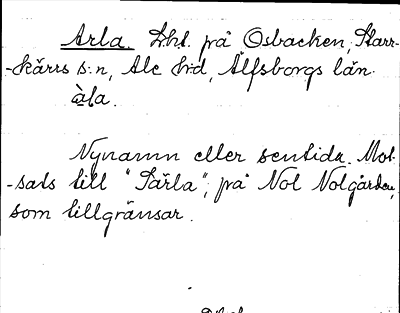 Arla. Lht. på Osbacken, Starr-
-kärrs s:n, Ale hd, Älfsborgs län.
àla.
Nynamn eller sentida. Mot-
-sats till "Särla", på Nol Nolgården,
som tillgränsar.